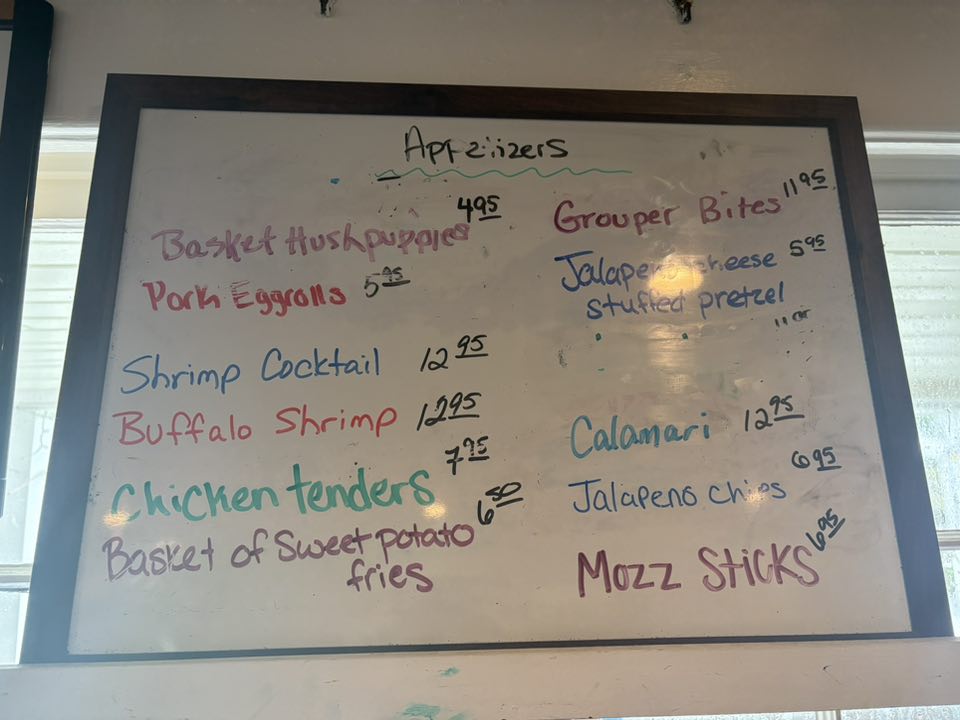 Appetizers
Basket Hushpuppies 4.95
Pork Eggrolls 5.95
Shrimp Cocktail 12.95
Buffalo Shrimp 12.95
Chicken tenders 7.95
Basket of Sweet potato 6.50
fries
Grouper Bites 11.95
Jalapeno cheese 5.95
stuffed pretzel
Calamari 12.95
Jalapeno chips 6.95
Mozz Sticks 6.95